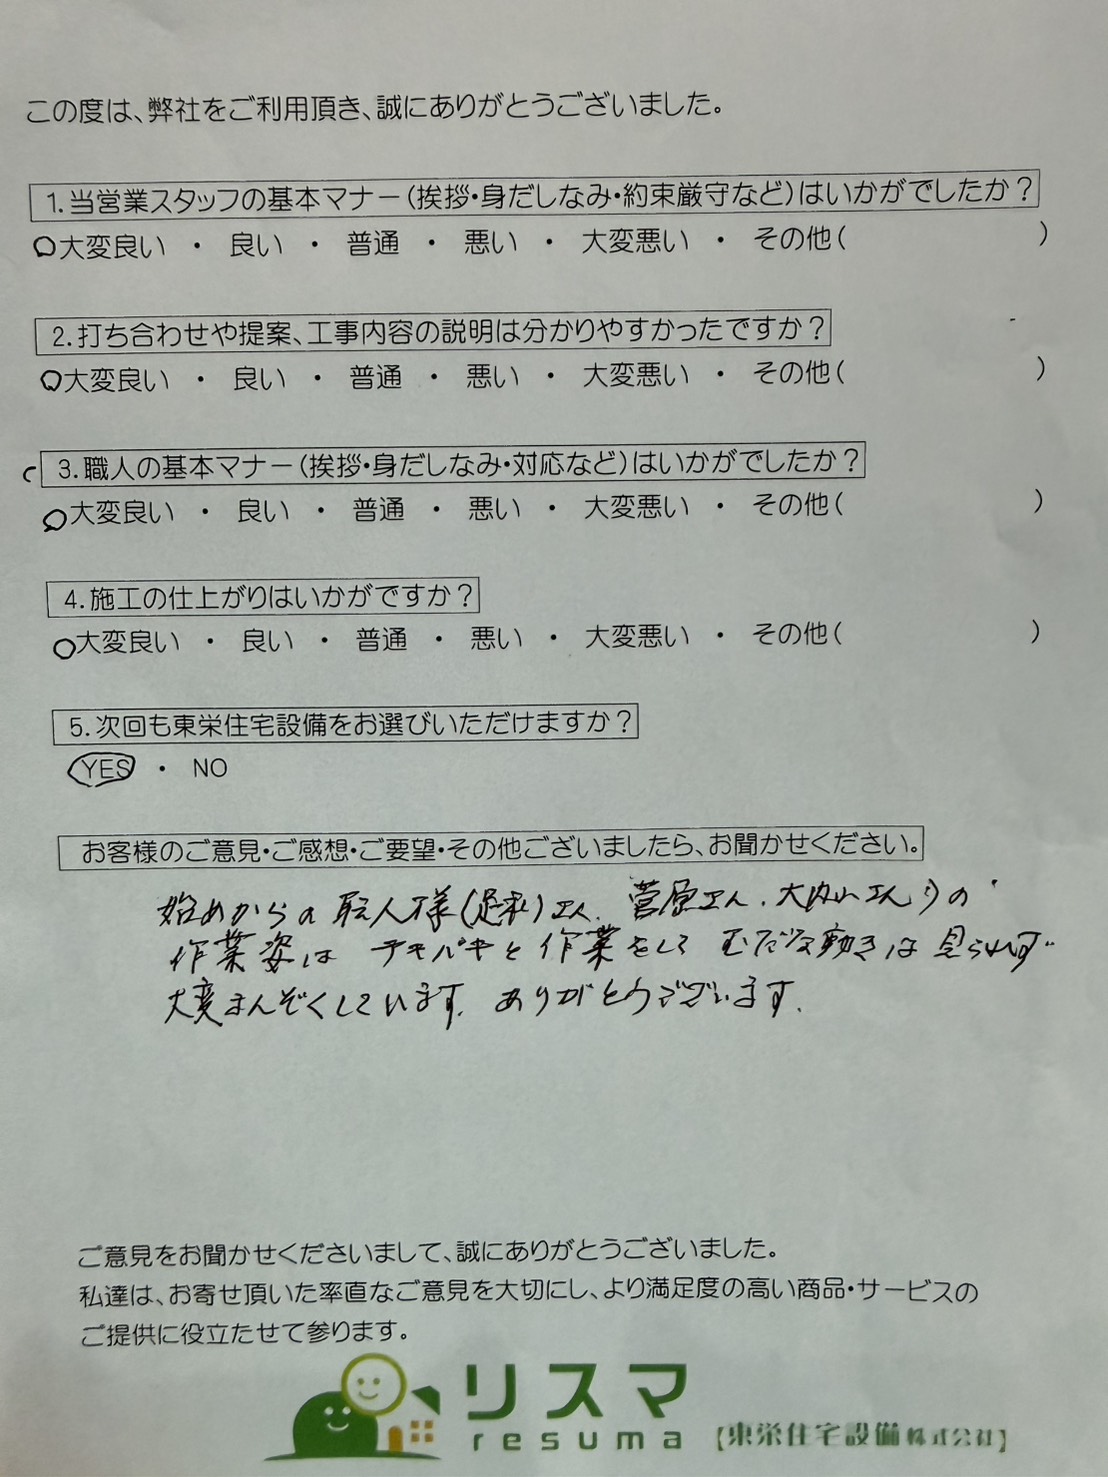 この度は、弊社をご利用頂き、誠にありがとうございました。
1.当営業スタッフの基本マナー(挨拶・身だしなみ・約束厳守など)はいかがでしたか?
大変良い ・ 良い ・ 普通 ・ 悪い ・ 大変悪い ・ その他( )
2.打ち合わせや提案、工事内容の説明は分かりやすかったですか?
大変良い ・ 良い ・ 普通 ・ 悪い ・ 大変悪い ・ その他( )
3.職人の基本マナー(挨拶・身だしなみ・対応など)はいかがでしたか?
大変良い ・ 良い ・ 普通 ・ 悪い ・ 大変悪い ・ その他( )
4.施工の仕上がりはいかがですか?
大変良い ・ 良い ・ 普通 ・ 悪い ・ 大変悪い ・ その他( )
5.次回も東栄住宅設備をお選びいただけますか?
YES ・ NO
お客様のご意見・ご感想・ご要望・その他ございましたら、お聞かせください。
始めからの職人様(足利)さん、菅原さん、大内山さん の
作業姿は テキパキと作業をして むだな動きは見られず
大変まんぞくしています。ありがとうございます。
ご意見をお聞かせくださいまして、誠にありがとうございました。
私達は、お寄せ頂いた率直なご意見を大切にし、より満足度の高い商品・サービスの
ご提供に役立たせて参ります。
リスマ
resuma 【東栄住宅設備株式会社】